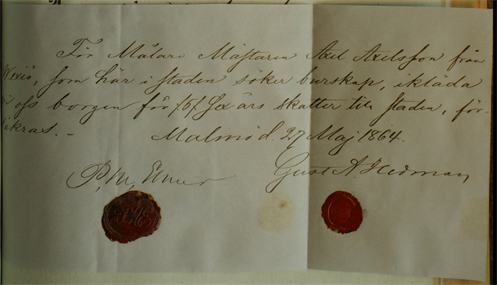 För Målare Mästaren Axel Axelsson från
Wexiö, som här i staden söker burskap, ikläda
vi oss borgen för /6/ Sex års skatter till staden, för-
säkras. -
Malmö d. 27 Maj 1864.
P. M. Elmer
Gust A Hedman